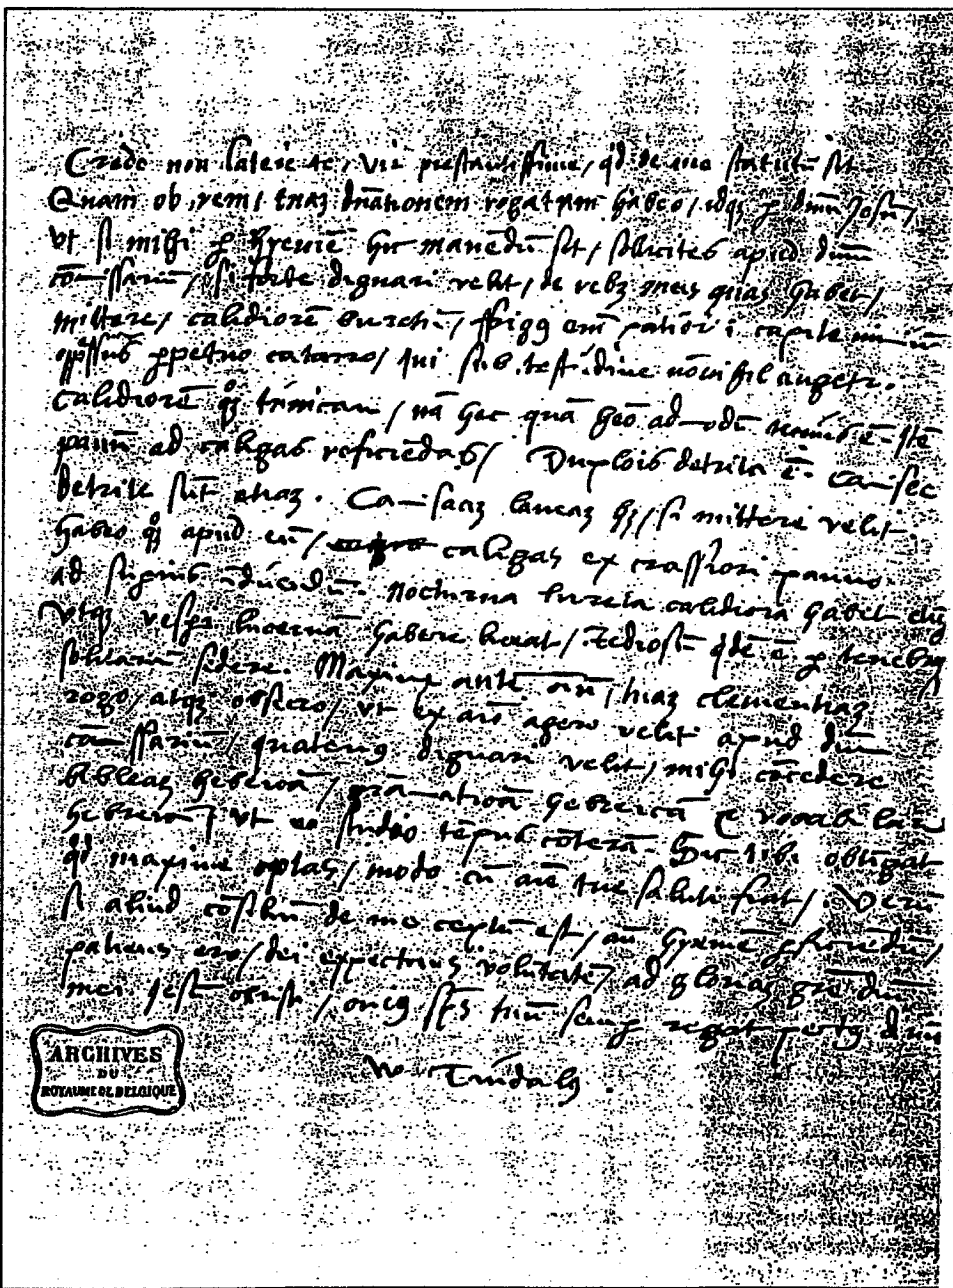 Credo non latere te, vir prestantissime, qd de me statutū sit
Quam ob rem, tuaȝ dnātionem rogatum habeo, idqȝ ꝑ dmū Jesū,
vt si mihi ꝑ hyemē hic manēdū sit, solicites apud dmū
cōmissariū, si forte dignari velit, de rebȝ meis quas habet,
mittere, calidiorē birethū, frigꝰ em̄ patior ī capite nimiū
opp̄ssus ꝑpetuo catarro, qui sub testitudine nōnihil augetr.
Calidiorē qȝ tunicam, nā hec quā heō admodū tenuis ē. Itē
pannū ad caligas reficiēdas, Duplois detrita ē. Camisee
detrite sūt etiaȝ. Camiseaȝ laneaȝ hȝ, si mittere velit.
habeo qȝ apud eū, caligas ex crassiori panno
ad superius īduēdū. Nocturna bireta calidiora habet etiȝ
vtqȝ vesperi lucernā habere liceat, tediosū qdē ē ꝑ tenebras
solitariū sedere. Maxime autē oīm̄, tuaȝ clementiaȝ
rogo, atqȝ obsecro, vt ex aīo agere velit apud dmū
cōmissariū, quatenꝰ dignari velit, mihi cōcedere
bibleaȝ hebreicā, grāmaticā hebreicā & vocabulariū
hebreicū, vt eo studio tēpus cōterā. Sic tibi obtīgat
qd maxime optas, modo cū aīe tue salute fiat, Verū
si aliud cōsiliū de me ceptū est, an̄ hyemē ꝑficiēdū,
patiens ero, dei expectans volūtatē, ad gloriaȝ grē dmī
mei Jesu christi, cuiꝰ sp̄s tuū semꝑ regat pectꝰ amē
W. Tindalꝰ
ARCHIVES
DU
ROYAUME DE BELGIQUE